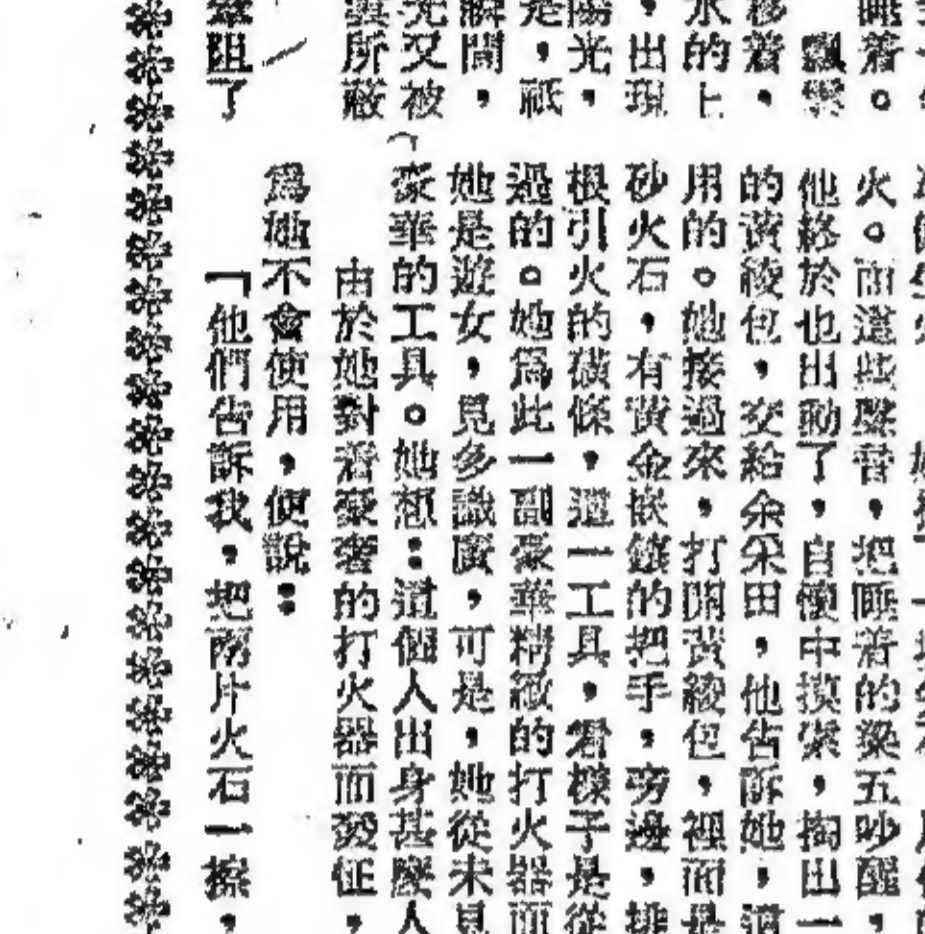 睡着。
飄擊
移着，
水的上
，出現
陽光，
是，祇
瞬間，
光又被
所蔽
阻了
火。而這些聲音，把睡着的梁五吵醒，
他終於也出動了，自懷中摸索，掏出一
的黃綾包，交給余采田，他告訴她，這
用的。她接過來，打開黃綾包，裡面是
砂火石，有黃金嵌鑲的把手，旁邊，排
根引火的磺條，這一工具，看樣子是從
過的。她爲此一副豪華精緻的打火器而
她是遊女，見多識廣，可是，她從未見
豪華的工具。她想：這個人出身甚麼人
由於她對着豪奢的打火器而發怔，
爲她不會使用，便說：
「他們告訴我，把兩片火石一擦，